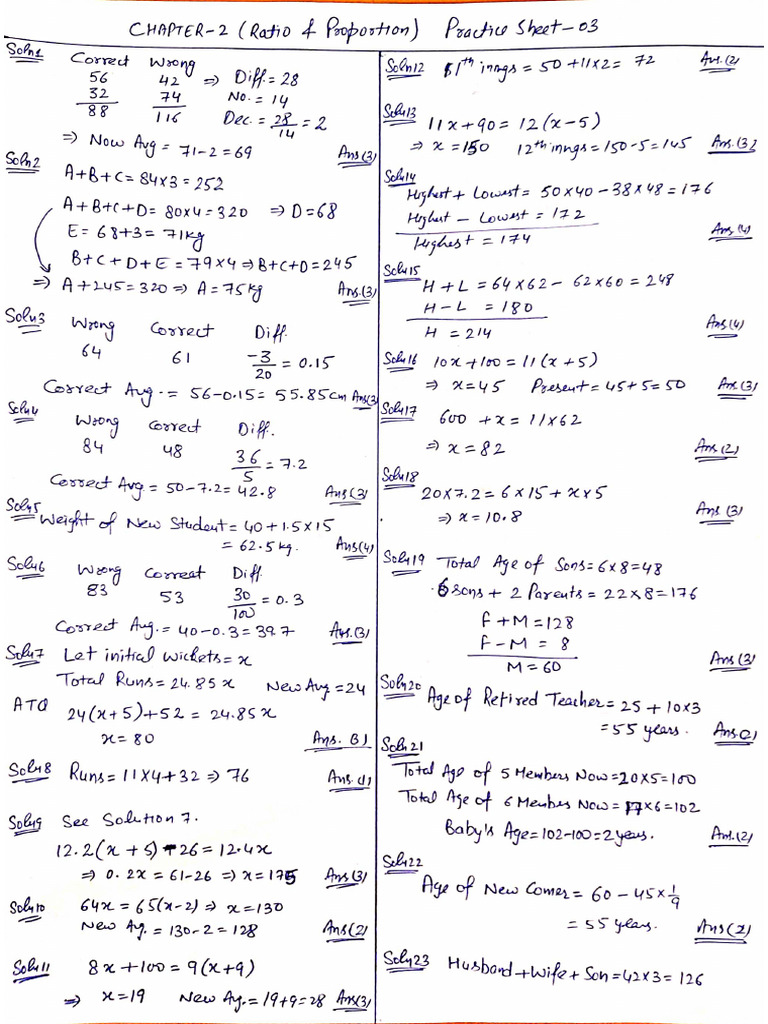 CHAPTER-2 (Ratio & Proportion) Practice Sheet-03
Soln1
Correct Wrong
56 42 ⇒ Diff. = 28
32 74 No. = 14
88 116 Dec. = 28/14 = 2
⇒ Now Avg = 71-2 = 69 Ans(3)
Soln2
A+B+C = 84×3 = 252
A+B+C+D = 80×4 = 320 ⇒ D = 68
E = 68+3 = 71kg
B+C+D+E = 79×4 ⇒ B+C+D = 245
⇒ A+245 = 320 ⇒ A = 75kg Ans(3)
Soln3
Wrong Correct Diff.
64 61 -3/20 = 0.15
Correct Avg. = 56-0.15 = 55.85cm Ans(3
Soln4
Wrong Correct Diff.
84 48 36/5 = 7.2
Correct Avg = 50-7.2 = 42.8 Ans(3)
Soln5
Weight of New Student = 40+1.5×15
= 62.5kg. Ans(4)
Soln6
Wrong Correct Diff.
83 53 30/100 = 0.3
Correct Avg. = 40-0.3 = 39.7 Ans.(3)
Soln7 Let initial Wickets = x
Total Runs = 24.85x New Avg = 24
ATQ
24(x+5)+52 = 24.85x
x = 80 Ans. (3)
Soln8 Runs = 11×4+32 ⇒ 76 Ans.(1)
Soln9 See Solution 7.
12.2(x+5)-26 = 12.4x
⇒ 0.2x = 61-26 ⇒ x = 175 Ans(3)
Soln10 64x = 65(x-2) ⇒ x = 130
New Avg. = 130-2 = 128 Ans(2)
Soln11 8x+100 = 9(x+9)
⇒ x = 19 New Avg. = 19+9 = 28 Ans(3)
Soln12 11th inngs = 50+11×2 = 72 Ans.(2)
Soln13
11x+90 = 12(x-5)
⇒ x = 150 12th inngs = 150-5 = 145 Ans(3)
Soln14
Highest + Lowest = 50×40-38×48 = 176
Highest - Lowest = 172
Highest = 174 Ans(4)
Soln15
H+L = 64×62-62×60 = 248
H-L = 180
H = 214 Ans(4)
Soln16 10x+100 = 11(x+5)
⇒ x = 45 Present = 45+5 = 50 Ans(3)
Soln17
600 + x = 11×62
⇒ x = 82 Ans(2)
Soln18
20×7.2 = 6×15+x×5
⇒ x = 10.8 Ans(3)
Soln19 Total Age of Sons = 6×8 = 48
6 Sons + 2 Parents = 22×8 = 176
F+M = 128
F-M = 8
M = 60 Ans(3)
Soln20
Age of Retired Teacher = 25+10×3
= 55 years. Ans(2)
Soln21
Total Age of 5 Members Now = 20×5 = 100
Total Age of 6 Members Now = 17×6 = 102
Baby's Age = 102-100 = 2 years. Ans(2)
Soln22
Age of New Comer = 60-45×1/9
= 55 years. Ans(2)
Soln23
Husband+Wife+Son = 42×3 = 126